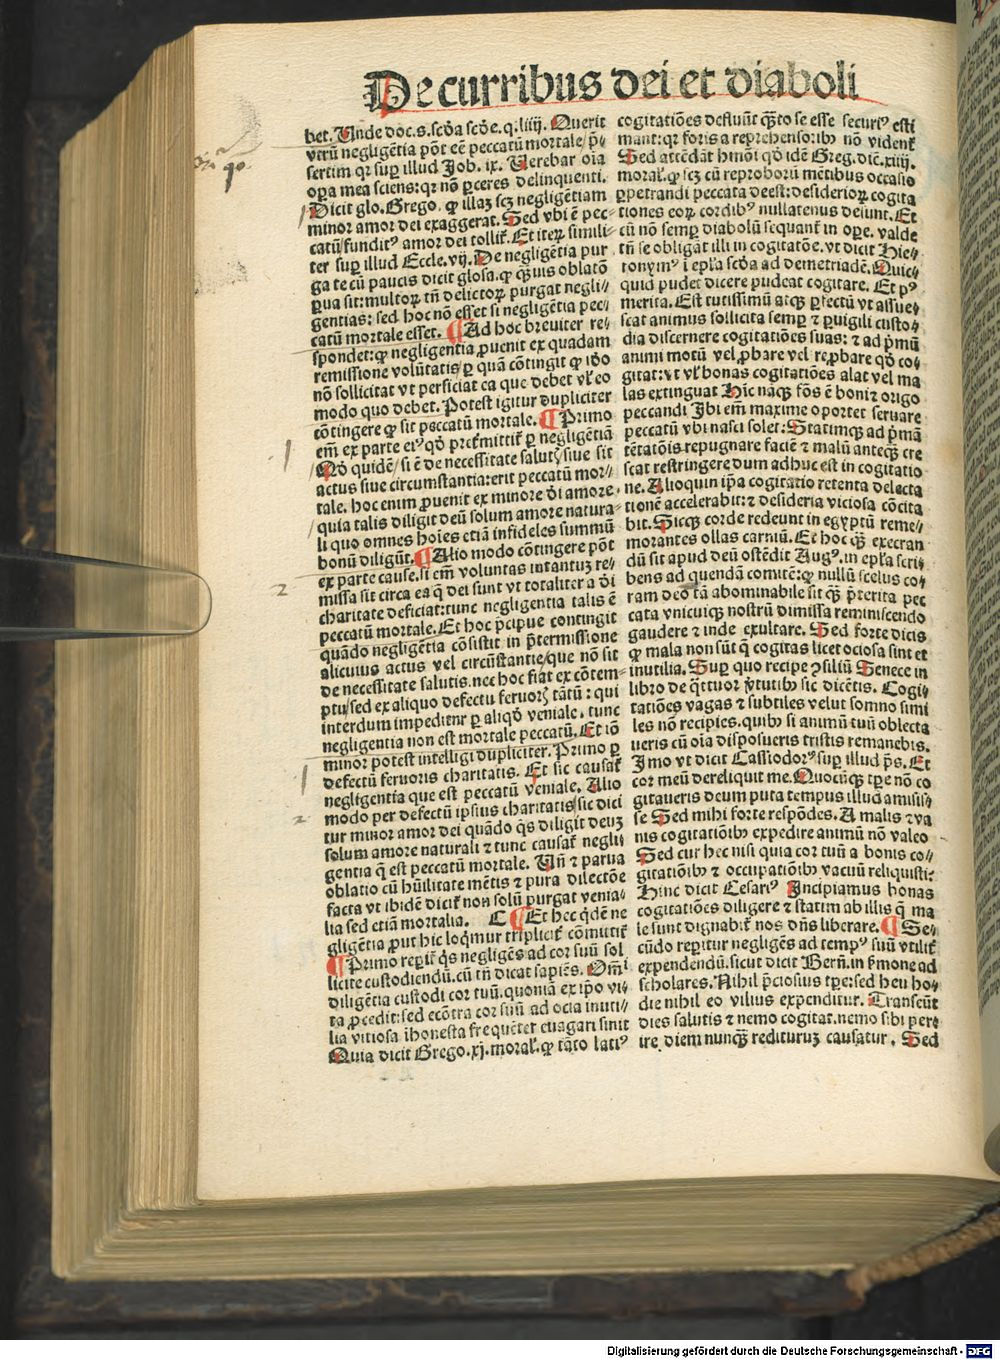 De curribus dei et diaboli
bet. Unde doc. s. scďa scďe. q. liiij. Querit
vtrū negligētia pōt eē peccatū mortale / p̄-
sertim qꝛ suꝑ illud Job. ix. Uerebar oīa
oꝑa mea sciens: qꝛ nō ꝑceres delinquenti.
Dicit glo. Grego. ꝙ illaꝫ scꝫ negligētiam
minor amor dei exaggerat. Sed vbi ē pec-
catū / fundit᷒ amor dei tollit᷑. Et iteꝝ simili-
ter suꝑ illud Eccle. vij. De negligētia pur
ga te cū paucis dicit glosa. ꝙ ꝙuis oblatō
ꝑua sit: multoꝝ tñ delictoꝝ purgat negli-
gentias: sed hoc nō esset si negligētia pec-
catū mortale esset. ¶ Ad hoc breuiter re-
spondet: ꝙ negligentia ꝓuenit ex quadam
remissione volūtatis / ꝑ quā cōtingit ꝙ iďo
nō sollicitat vt perficiat ea que debet vl̓ eo
modo quo debet. Potest igitur dupliciter
cōtingere ꝙ sit peccatū mortale. ¶ Primo
em̄ ex parte ei᷒ qď pretmittit᷑ ꝑ negligētiā
Qď quidē / si ē de necessitate salutꝭ / siue sit
actus siue circumstantia: erit peccatū mor-
tale. hoc enim ꝓuenit ex minore ďi amore.
quia talis diligit deū solum amore natura-
li quo omnes hoīes etiā infideles summū
bonū diligūt. ¶ Alio modo cōtingere pōt
ex parte cause. si em̄ voluntas intantuꝫ re-
missa sit circa ea q̄ dei sunt vt totaliter a ďi
charitate deficiat: tunc negligentia talis ē
peccatū mortale. Et hoc p̄cipue contingit
quādo negligētia cōsistit in p̄termissione
alicuius actus vel circūstantie / que nō sit
de necessitate salutis. nec hoc fiat ex cōtem-
ptu / sed ex aliquo defectu feruorꝭ tātū: qui
interdum impeditur ꝑ aliqď veniale. tunc
negligentia non est mortale peccatū. Et iō
minor potest intelligi dupliciter. Primo ꝑ
defectū feruoris charitatis. Et sic causat᷑
negligentia que est peccatū veniale. Alio
modo per defectū ipsius charitatis / sic dici
tur minor amor dei quādo q̇s diligit deuꝫ
solum amore naturali ⁊ tunc causat᷑ negli
gentia q̄ est peccatū mortale. Uñ ⁊ parua
oblatio cū hūilitate mētis ⁊ pura dilectōe
facta vt ibidē dicit᷑ non solū purgat venia-
lia sed etiā mortalia. C ¶ Et hec q̇dē ne
gligētia ꝓut hic loq̇mur tripliciť cōmittit᷑
¶ Primo reꝑit᷑ q̇s negligēs ad cor suū sol
licite custodiendū. cū tñ dicat sapiēs. Om̄i
diligētia custodi cor tuū. quoniā ex ip̄o vi-
ta ꝓcedit: sed ecōtra cor suū ad ocia inuti-
lia vitiosa ihonesta frequēter euagari sinit
Quia dicit Grego. xj. moral̓. ꝙ tāto lati᷒
cogitatiōes defluūt q̄ꝫto se esse securi᷒ esti
mant: qꝛ foris a reprehensoribꝫ nō vident᷑
Sed attēdāt hmōi qď idē Greg. dic̄. xiiij.
moral̓. ꝙ scꝫ cū reproborū mētibus occasio
ꝑpetrandi peccata deest: desideriоꝝ cogita
tiones eoꝝ cordibꝫ nullatenus desunt. Et
cū nō semꝑ diabolū sequant᷑ in oꝑe. valde
tñ se obligāt illi in cogitatōe. vt dicit Hie-
ronym᷒ ī ep̄la scďa ad demetriadē. Quic-
quid pudet dicere pudeat cogitare. Et p᷒
merita. Est tutissimū atqꝫ ꝑfectū vt assue-
scat animus sollicita semꝑ ⁊ ꝑuigili custo-
dia discernere cogitatiōes suas: ⁊ ad pᷓmū
animi motū vel ꝓbare vel reꝓbare qď co-
gitat: vt vl̓ bonas cogitatiōes alat vel ma
las extinguat. Hic naqꝫ fōs ē boni ⁊ origo
peccandi. Ibi em̄ maxime oportet seruare
peccatū vbi nasci solet: Statimqꝫ ad pᷓmā
tētatōis repugnare faciē ⁊ malū anteqꝫ cre
scat restringere dum adhuc est in cogitatio
ne. Alioquin ip̄a cogitatio retenta delecta
tionē accelerabit: ⁊ desideria viciosa cōcita
bit. Sicqꝫ corde redeunt in egyptū reme-
morantes ollas carniū. Et hoc qꝫ execran
dū sit apud deū ostēdit Aug᷒. in ep̄la scri-
bens ad quendā comitē: ꝙ nullū scelus co-
ram deo tā abominabile sit q̄ꝫ p̄terita pec
cata vnicuiqꝫ nostrū dimissa reminiscendo
gaudere ⁊ inde exultare. Sed forte dicis
ꝙ mala non sūt q̄ cogitas licet ociosa sint et
inutilia. Suꝑ quo recipe ꝯsiliū Senece in
libro de q̄ttuor v̓tutibꝫ sic dicētis. Cogi-
tatiōes vagas ⁊ subtiles velut somno simi
les nō recipies. quibꝫ si animū tuū oblecta
ueris cū oīa disposueris tristis remanebis.
Imo vt dicit Cassiodor᷒ suꝑ illud ps̄. Et
cor meū dereliquit me. Quocūqꝫ tꝑe nō co
gitaueris deum puta tempus illud amisis-
se Sed mihi forte respōdes. A malis ⁊ va
nis cogitatiōibꝫ expedire animū nō valeo
Sed cur hec nisi quia cor tuū a bonis co-
gitatiōibꝫ ⁊ occupatiōibꝫ vacuū reliquisti:
Hinc dicit Cesari᷒ Incipiamus bonas
cogitatiōes diligere ⁊ statim ab illis q̄ ma
le sunt dignabit᷑ nos dn̄s liberare. ¶ Se-
cūdo reꝑitur negligēs ad temp᷒ suū vtilit᷑
expendendū. sicut dicit Berñ. in ẜmone ad
scholares. Nihil p̄ciosius tꝑe: sed heu ho-
die nihil eo vilius expenditur. Transeūt
dies salutis ⁊ nemo cogitat. nemo sibi peri-
ire diem nunqꝫ redituruꝫ causatur. Sed
1
2
1
2
Digitalisierung gefördert durch die Deutsche Forschungsgemeinschaft - DFG